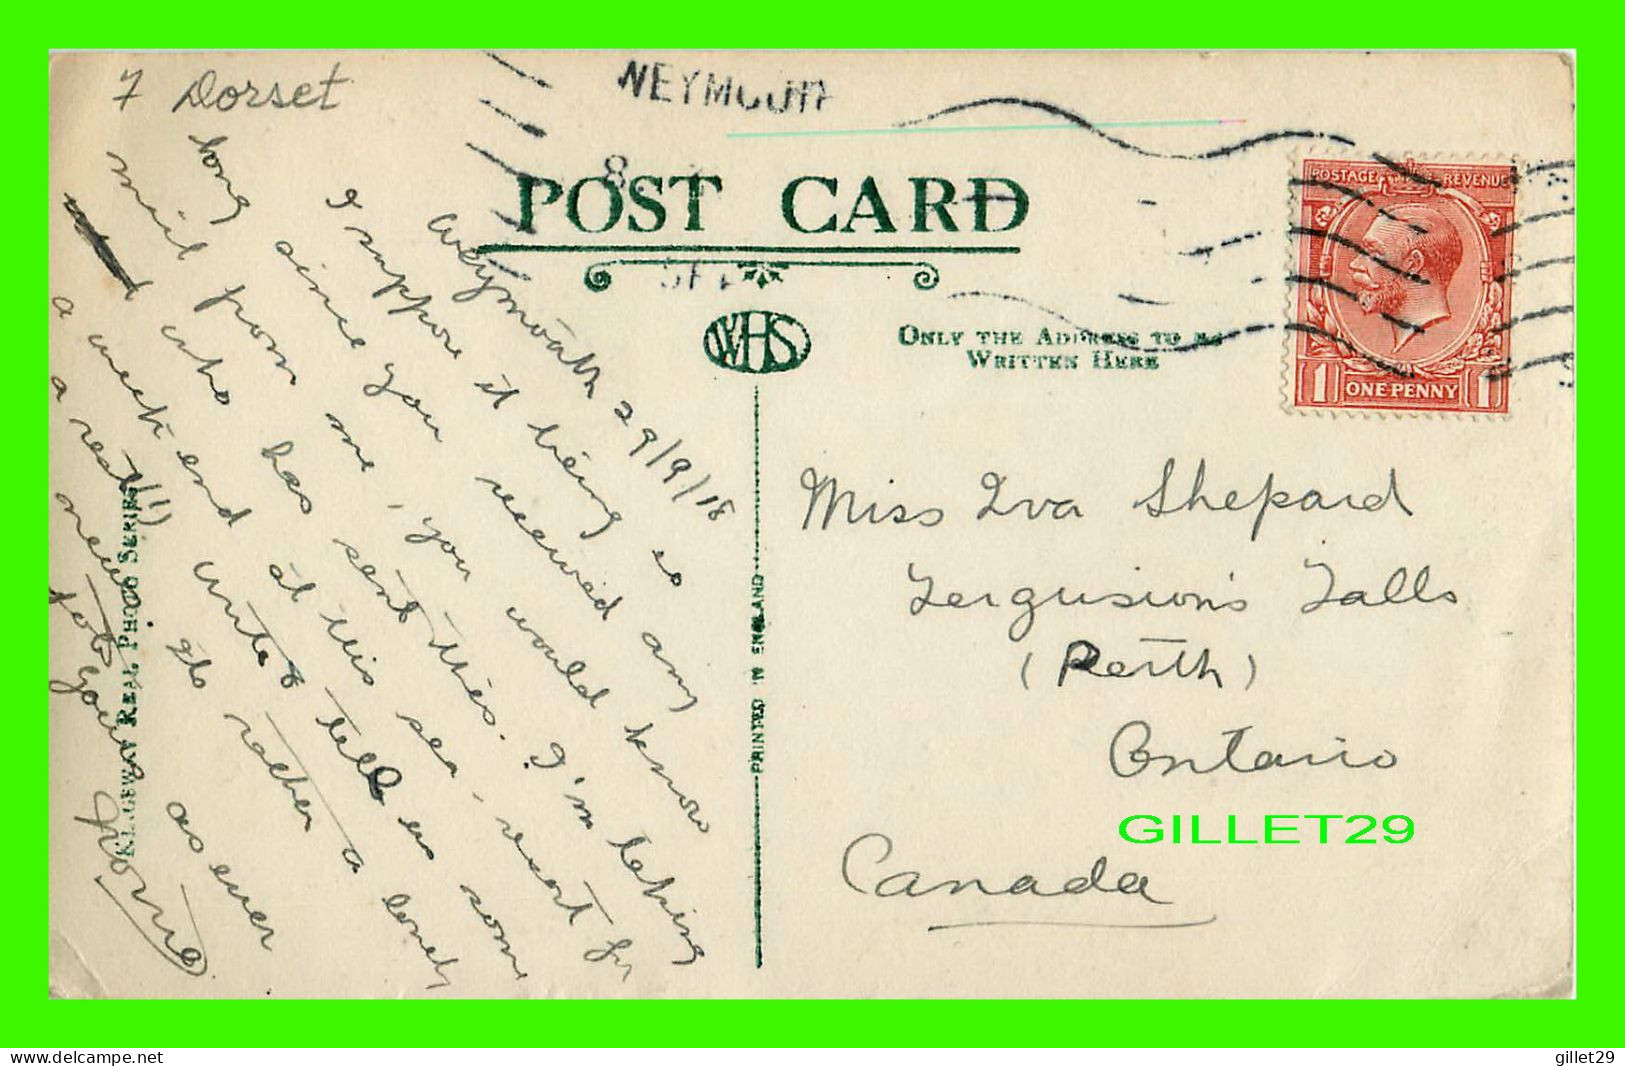 7 Dorset
WEYMOUTH
8
SEP
POST CARD
WHS
ONLY THE ADDRESS TO BE
WRITTEN HERE
POSTAGE REVENUE
1 ONE PENNY 1
Weymouth 29/9/18
I suppose it being so
long since you received any
mail from me, you would know
who has sent this. I'm taking
a week end at this sea-resort for
a rest(!!) Write & tell us some
news. It's rather a lonely
job. Yours as ever
Norrie
PRINTED IN ENGLAND
KINGSWAY REAL PHOTO SERIES
Miss Iva Shepard
Fergusion's Falls
(Perth)
Ontario
Canada
GILLET29
www.delcampe.net
gillet29